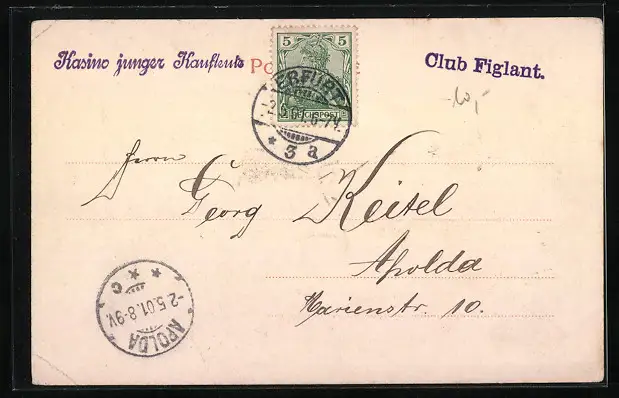 Kasino junger Kaufleute
Club Figlant.
5 5
REICHSPOST
ERFURT
3 a
Herrn
Georg Keitel
Apolda
Marienstr. 10.
APOLDA
-2.5.01.8-9V.
* * *
c